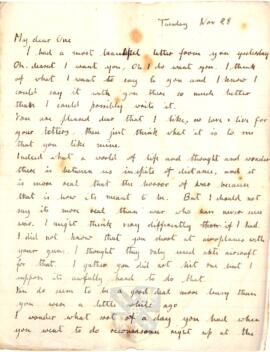 Tuesday Nov 28
My dear One
I had a most beautiful letter from you yesterday
Oh. dearest I want you, Oh I do want you. I think
of what I want to say to you and I know I
could say it with you there so much better
than I could possibly write it.
You are pleased dear that I like, no love & live for
your letters. then just think what it is to me
that you like mine.
Indeed what a world of life and thought and wonder
there is between us inspite of distance, and it
is more real than the horror of war because
that is how its meant to be. But I should not
say its more real than war who has never seen
war. I might think very differently then if I had.
I did not know that you shoot at aeroplanes with
your guns. I thought they only used anti aircraft
for that. I gather you did not hit one but I
suppose its awfully hard to do that.
You do seem to be a good deal more busy than
you were a little while ago
I wonder what sort of a day you had when
you went to do reconnaissance right up at the